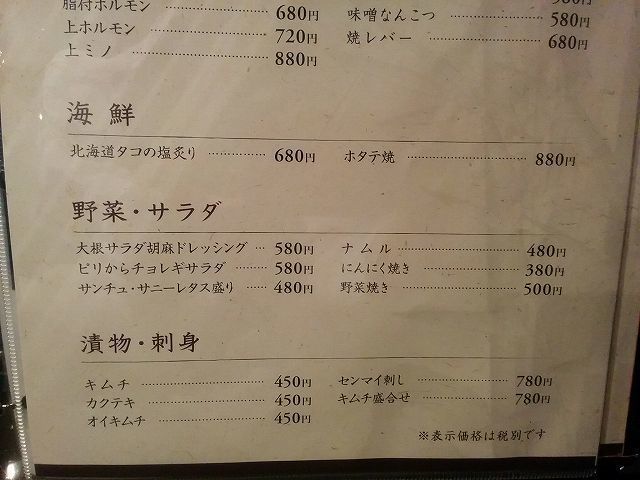 脂付ホルモン 680円
上ホルモン 720円
上ミノ 880円
味噌なんこつ 580円
焼レバー 680円
海鮮
北海道タコの塩炙り 680円
ホタテ焼 880円
野菜・サラダ
大根サラダ胡麻ドレッシング 580円
ピリからチョレギサラダ 580円
サンチュ・サニーレタス盛り 480円
ナムル 480円
にんにく焼き 380円
野菜焼き 500円
漬物・刺身
キムチ 450円
カクテキ 450円
オイキムチ 450円
センマイ刺し 780円
キムチ盛合せ 780円
※表示価格は税別です